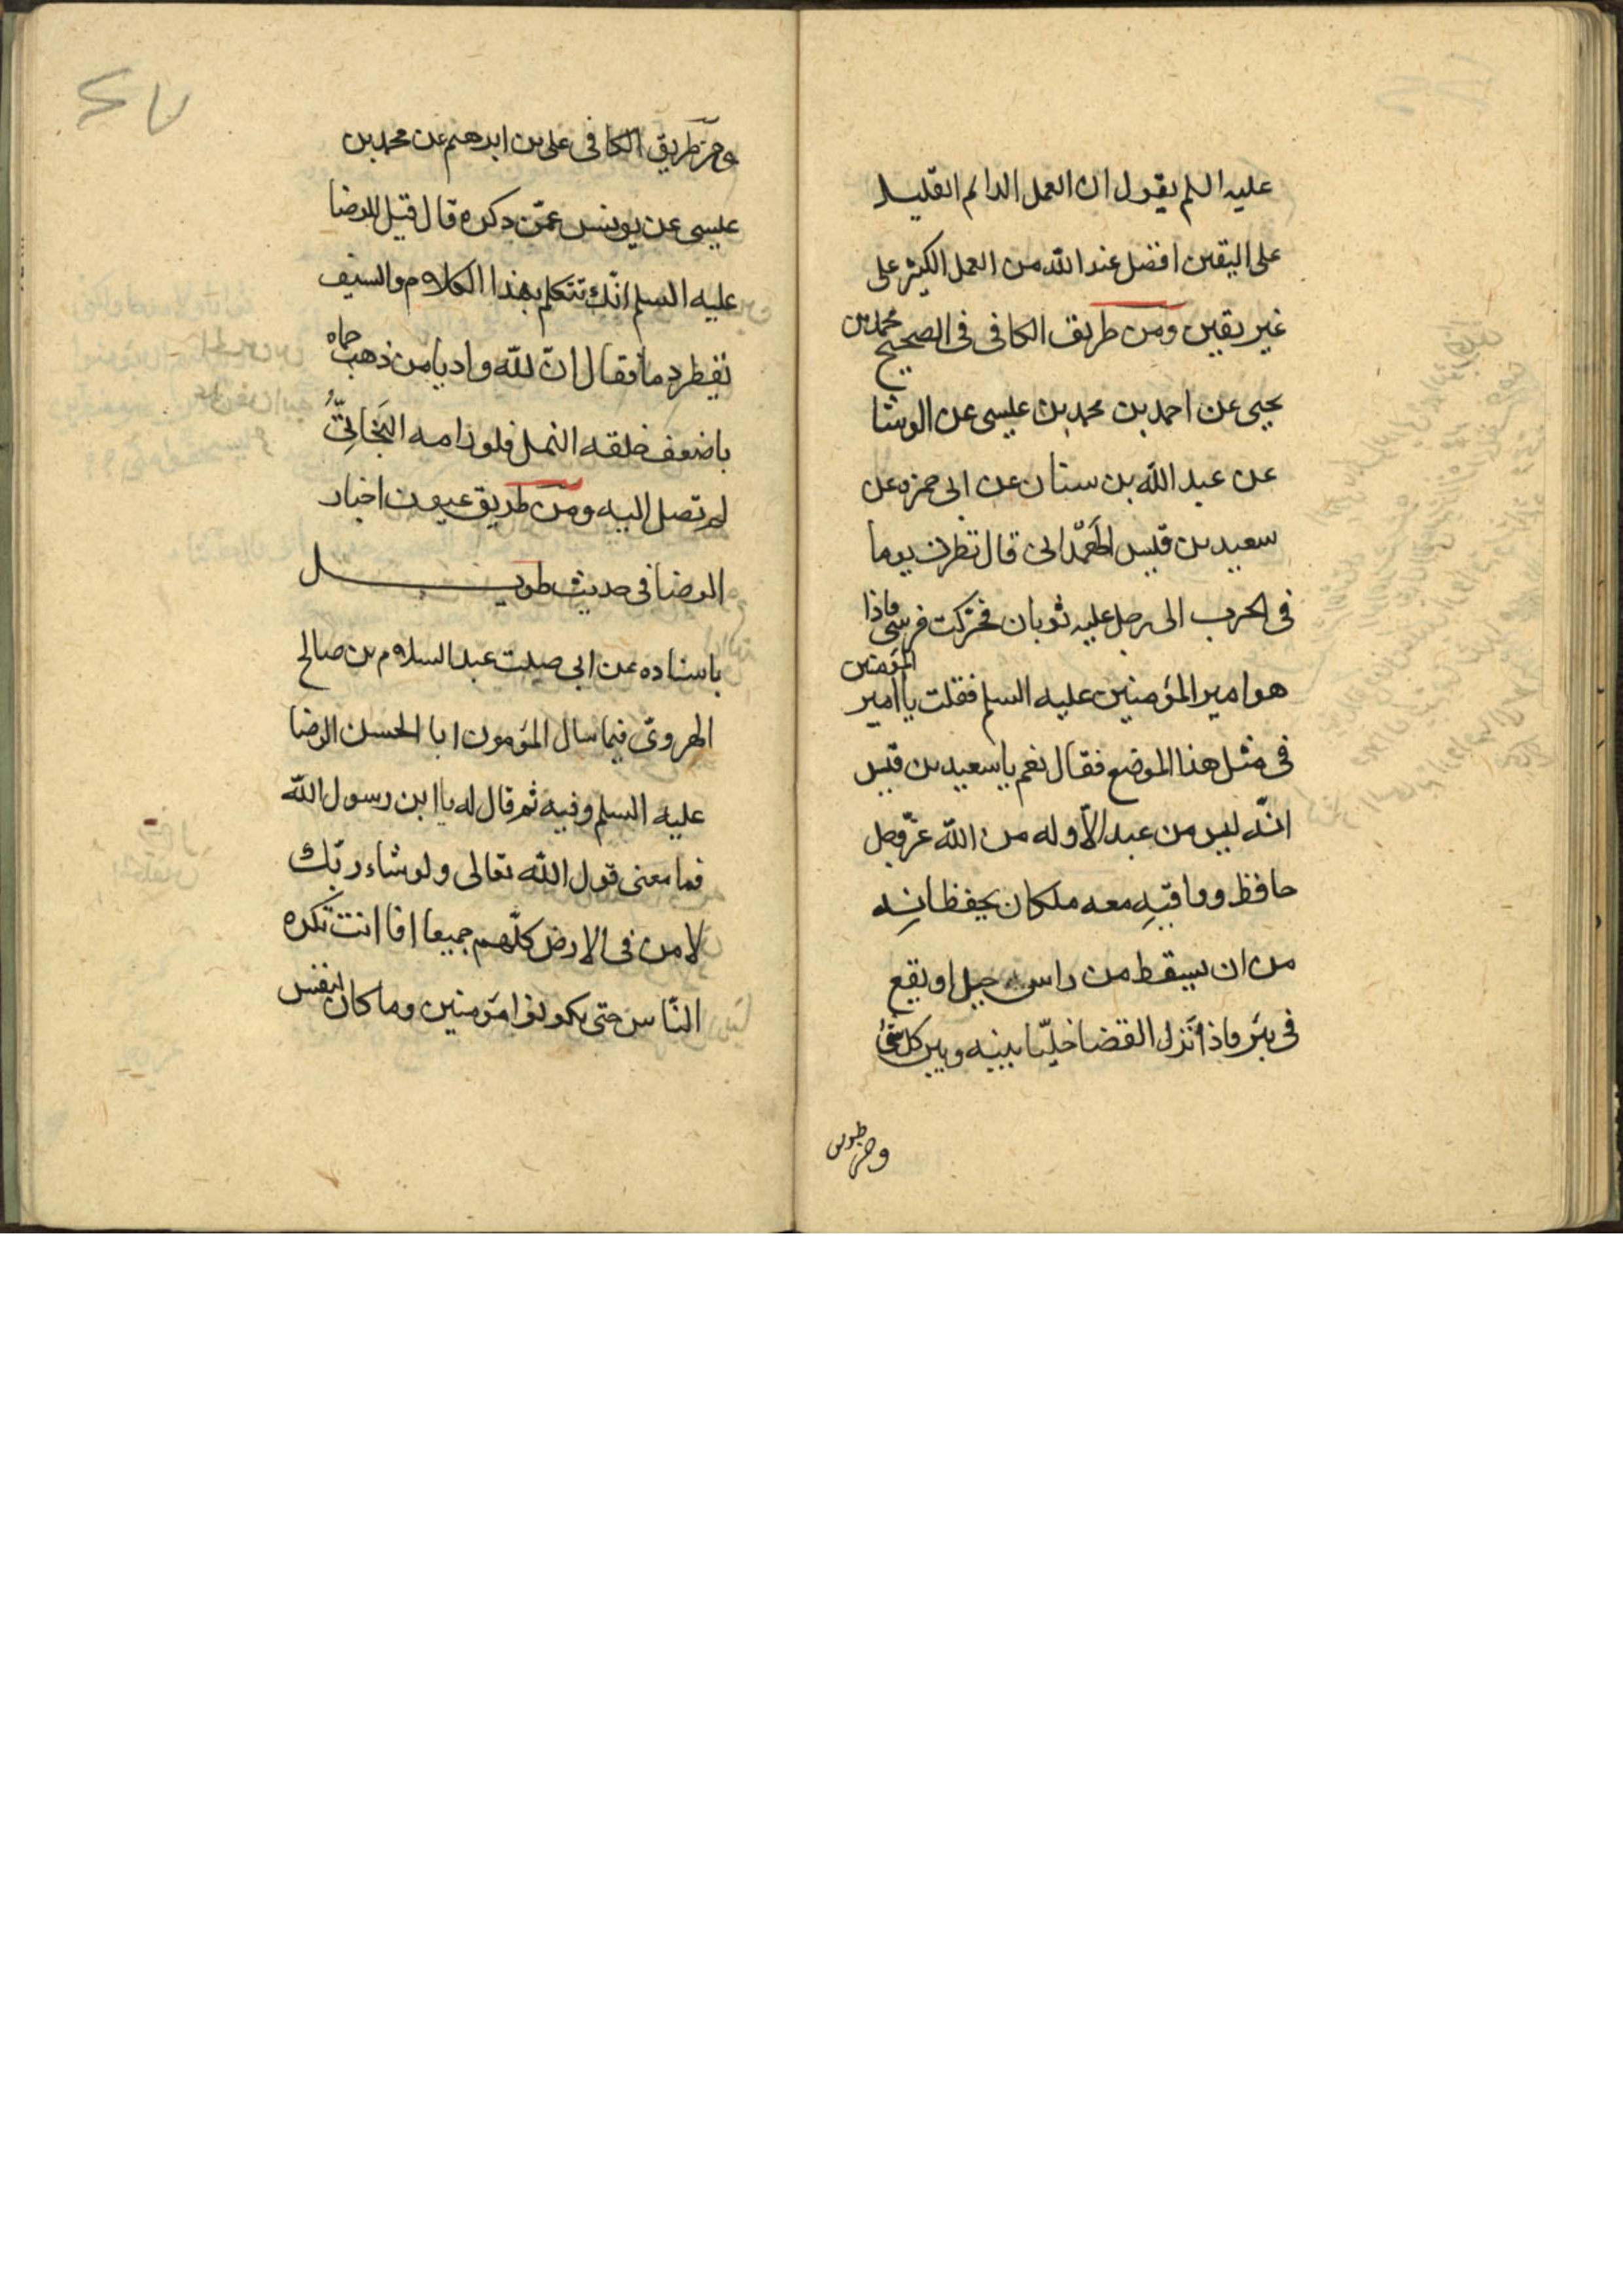 عليه السلم يقول ان العمل الدائم القليل
على اليقين افضل عند الله من العمل الكثير على
غير يقين ومن طريق الكافى فى الصحيح محمد بن
يحيى عن احمد بن محمد بن عليسى عن الوشا
عن عبد الله بن سنان عن ابى حمزه عن
سعيد بن قيس الهَمْدانى قال نظرت يوما
فى الحرب الى رجل عليه ثوبان فحرّكت فرسى فاذا
هو امير المؤمنين عليه السلم فقلت يا امير المؤمنين
فى مثل هذا الموضع فقال نعم يا سعيد بن قيس
انّه ليس من عبد الّا وله من الله عزّ وجل
حافظ وواقيه معه ملكان يحفظانه
من ان يسقط من راس جبل او يقع
فى بئر فاذا نزل القضا خلّيا بينه وبين كل شئ
ومن طريق
ومن طريق الكافى على بن ابرهيم عن محمد بن
عليسى عن يونس عمّن ذكره قال قيل للرضا
عليه السلم انّك تتكلم بهذا الكلام والسيف
يقطر دما فقال انّ لله واديا من ذهب حماه
باضعف خلقه النمل فلو رامه البَخَاتِىُّ
لم تصل اليه ومن طريق عيون اخبار
الرضا فى حديث طويـــل
باسناده عن ابى صلت عبد السلام بن صالح
الهروىّ فيما سال المؤمون ابا الحسن الرضا
عليه السلم وفيه ثم قال له يا ابن رسول الله
فما معنى قول الله تعالى ولو شاء ربّك
لامن فى الارض كلّهم جميعا افانت تكره
النّاس حتى يكونوا مؤمنين وما كان لنفس